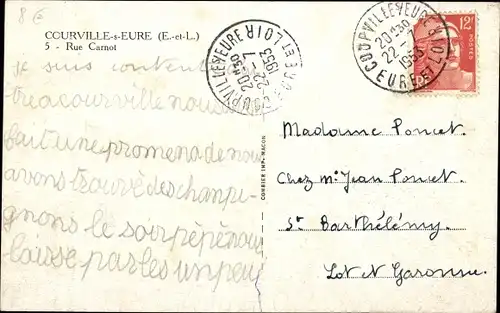 8 €
COURVILLE-s-EURE (E.-et-L.)
5 - Rue Carnot
COURVILLE-S-EURE
20 H30
22 -7
1953
EURE ET LOIR
COURVILLE-S-EURE
20 H30
22 -7
1953
EURE ET LOIR
12F
POSTES
je suis content
trea courville nous
fait une promenade nous
avons trouvé des champi-
gnons le soir pépé nous
laisse parles un peu
Madame Poncet
Chez Mr Jean Poncet
St Barthélémy
Lot et Garonne
COMBIER IMP. MACON